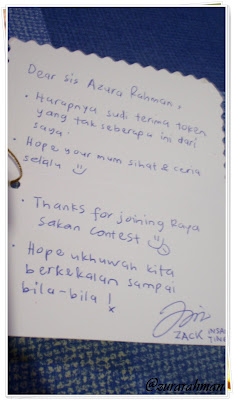 Dear sis Azura Rahman,
• Harapnya sudi terima token
yang tak seberapa ini dari
saya.
• Hope your mum sihat & ceria
selalu
• Thanks for joining Rapa
sakan contest
• Hope ukhuwah kita
berkekalan sampai
bila-bila !
ZACK
@zurarahman